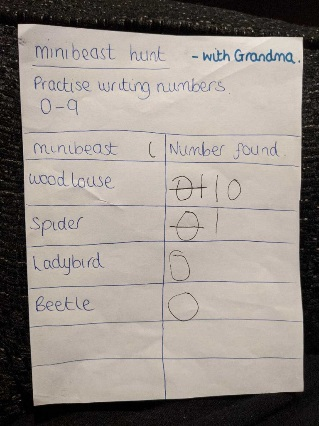 minibeast hunt - with Grandma.
Practise writing numbers.
0-9
minibeast ( Number found.
woodlouse 0 1 1 0
Spider 0 1
Ladybird 0
Beetle 0